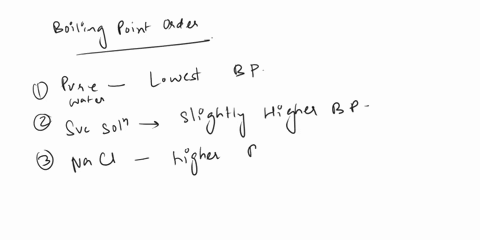 Boiling Point Order
① Pure — Lowest BP.
water
② Suc solⁿ → slightly Higher BP.
③ NaCl — higher